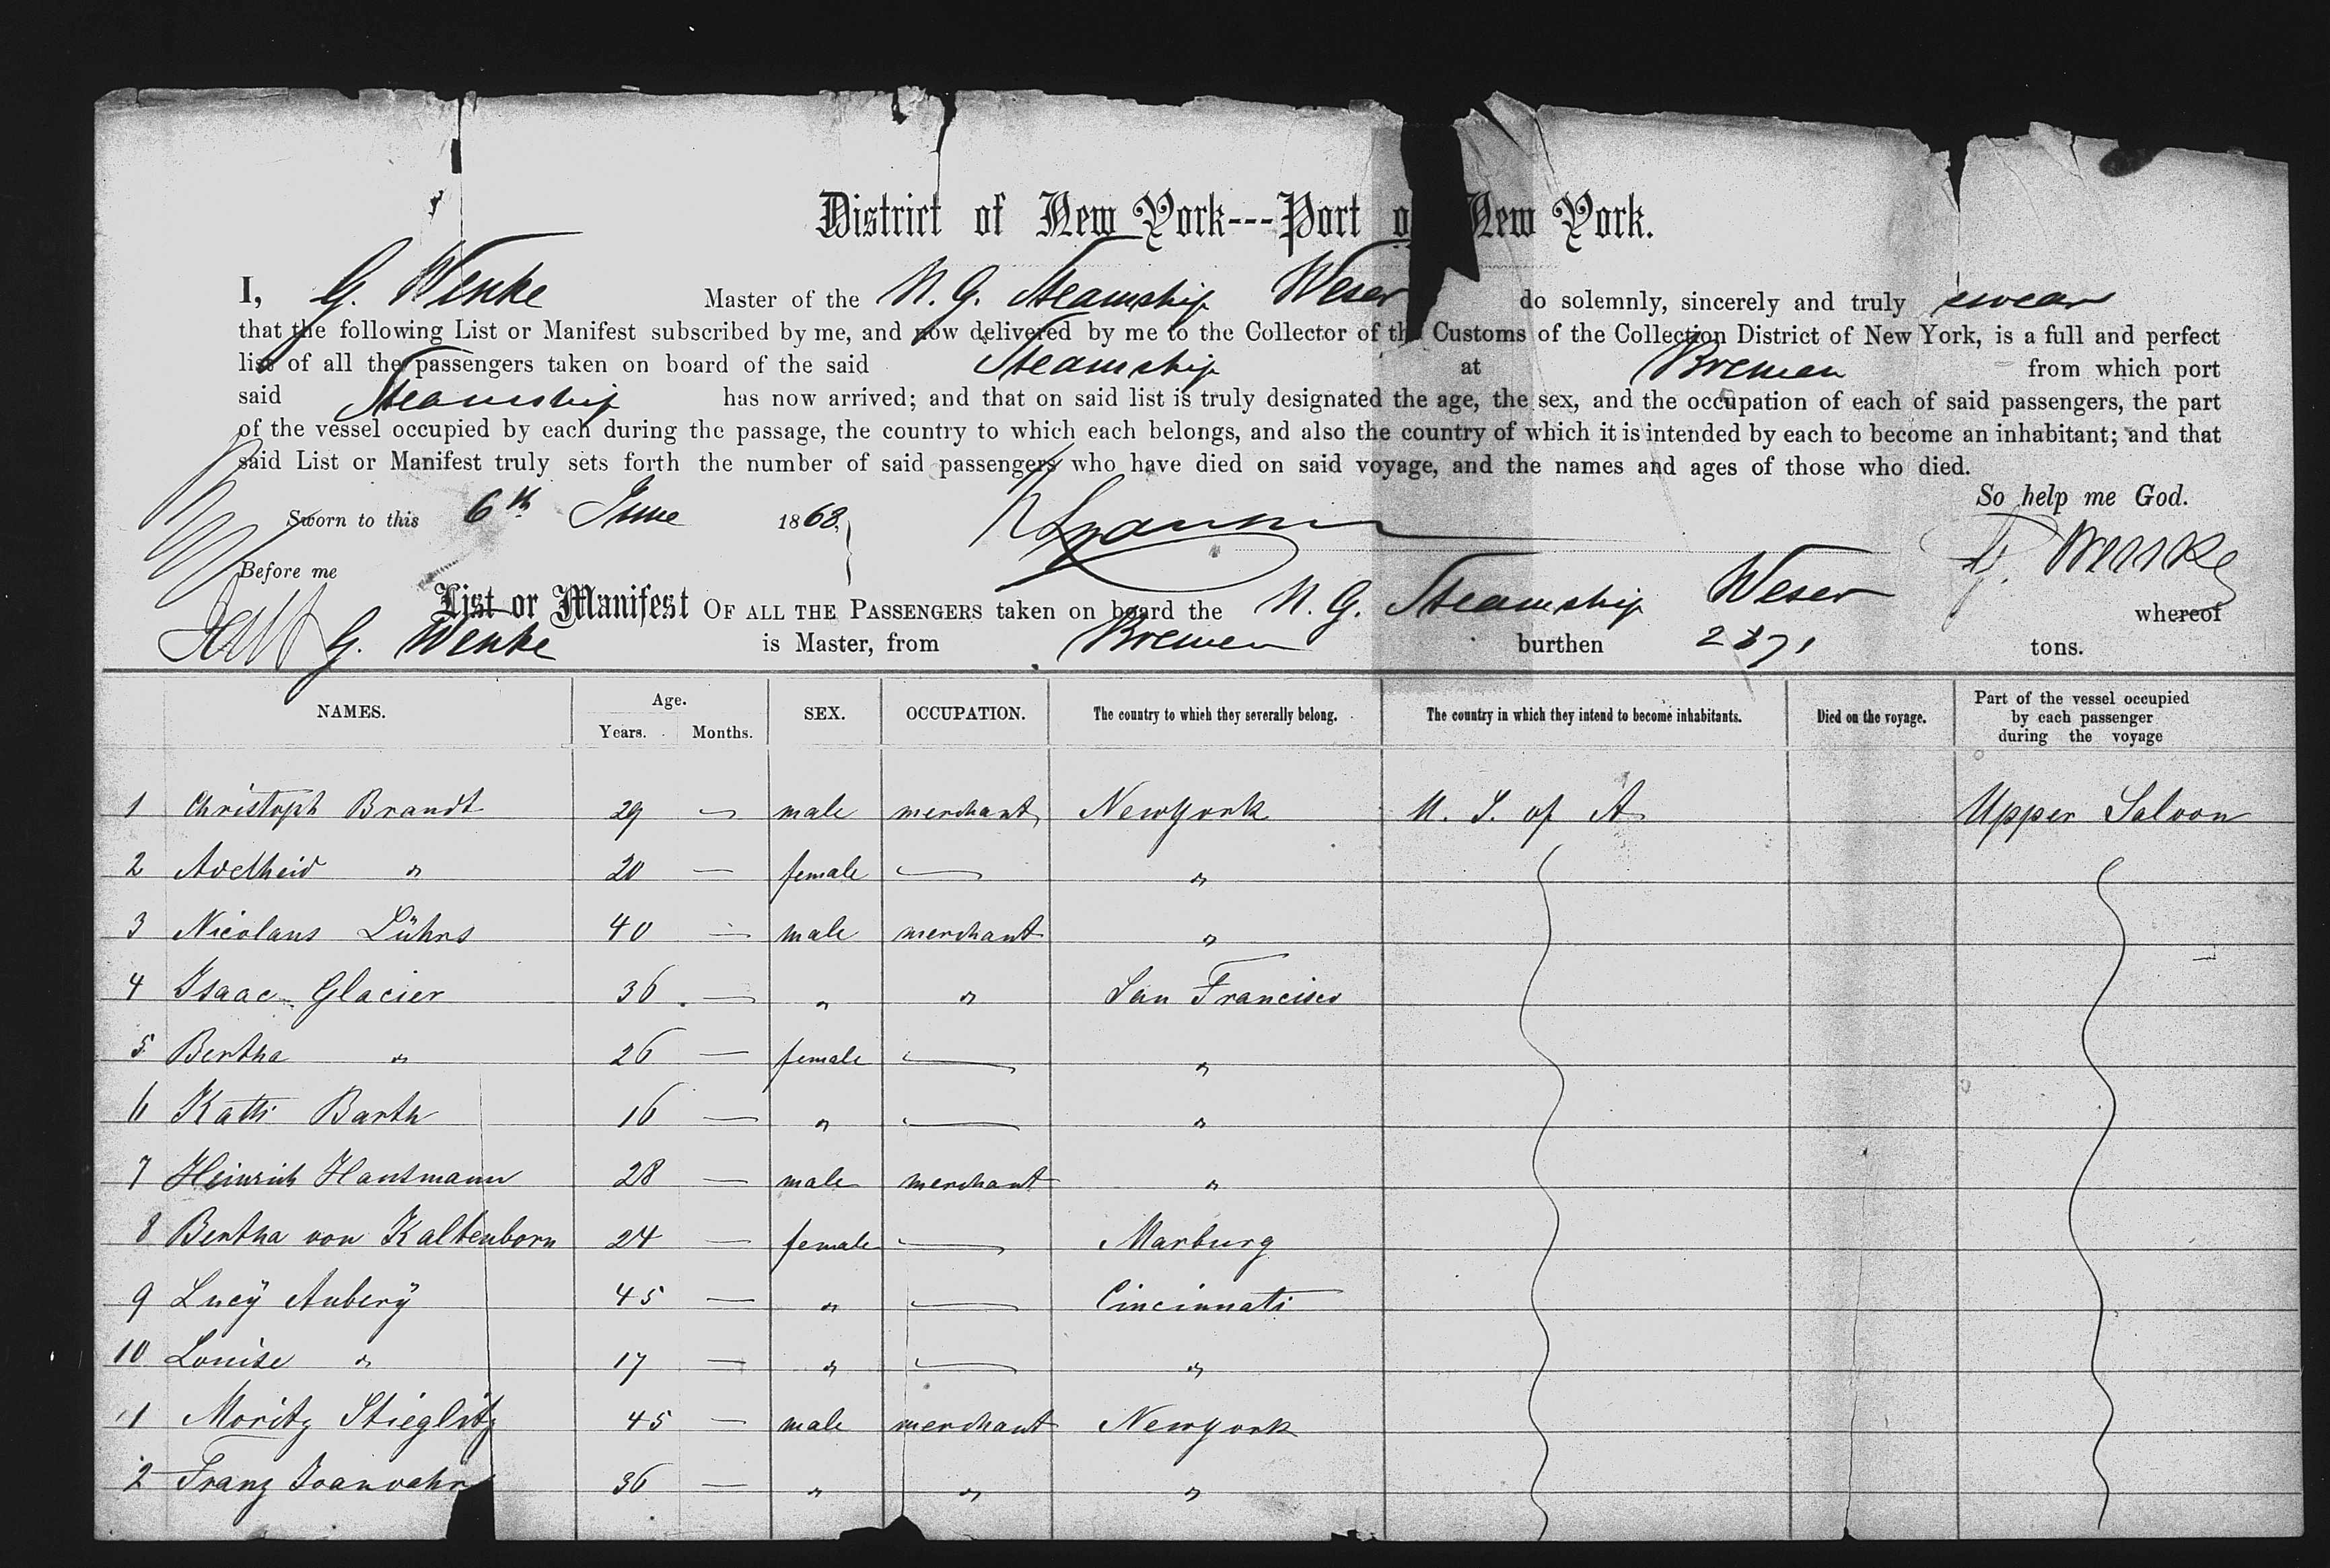 District of New York---Port of New York.
I, G. Wenke Master of the N. G. Steamship Weser do solemnly, sincerely and truly swear
that the following List or Manifest subscribed by me, and now delivered by me to the Collector of the Customs of the Collection District of New York, is a full and perfect
list of all the passengers taken on board of the said Steamship at Bremen from which port
said Steamship has now arrived; and that on said list is truly designated the age, the sex, and the occupation of each of said passengers, the part
of the vessel occupied by each during the passage, the country to which each belongs, and also the country of which it is intended by each to become an inhabitant; and that
said List or Manifest truly sets forth the number of said passengers who have died on said voyage, and the names and ages of those who died.
So help me God.
Sworn to this 6th June 1868.
G. Wenke
Before me
List or Manifest OF ALL THE PASSENGERS taken on board the N. G. Steamship Weser whereof
G. Wenke is Master, from Bremen burthen 2871 tons.
NAMES. Age. Years. Months. SEX. OCCUPATION. The country to which they severally belong. The country in which they intend to become inhabitants. Died on the voyage. Part of the vessel occupied by each passenger during the voyage
1 Christoph Brandt 29 — male merchant Newyork U. S. of A Upper Saloon
2 Adelheid " 20 — female — "
3 Nicolaus Lührs 40 — male merchant "
4 Isaac Glacier 36 — " " San Francisco
5 Bertha " 26 — female — "
6 Katti Barth 16 — " — "
7 Heinrich Hausmann 28 — male merchant "
8 Bertha von Kaltenborn 24 — female — Marburg
9 Lucÿ Auberÿ 45 — " — Cincinnati
10 Louise " 17 — " — "
11 Moritz Stieglitz 45 — male merchant Newyork
2 Franz 36 — " " "